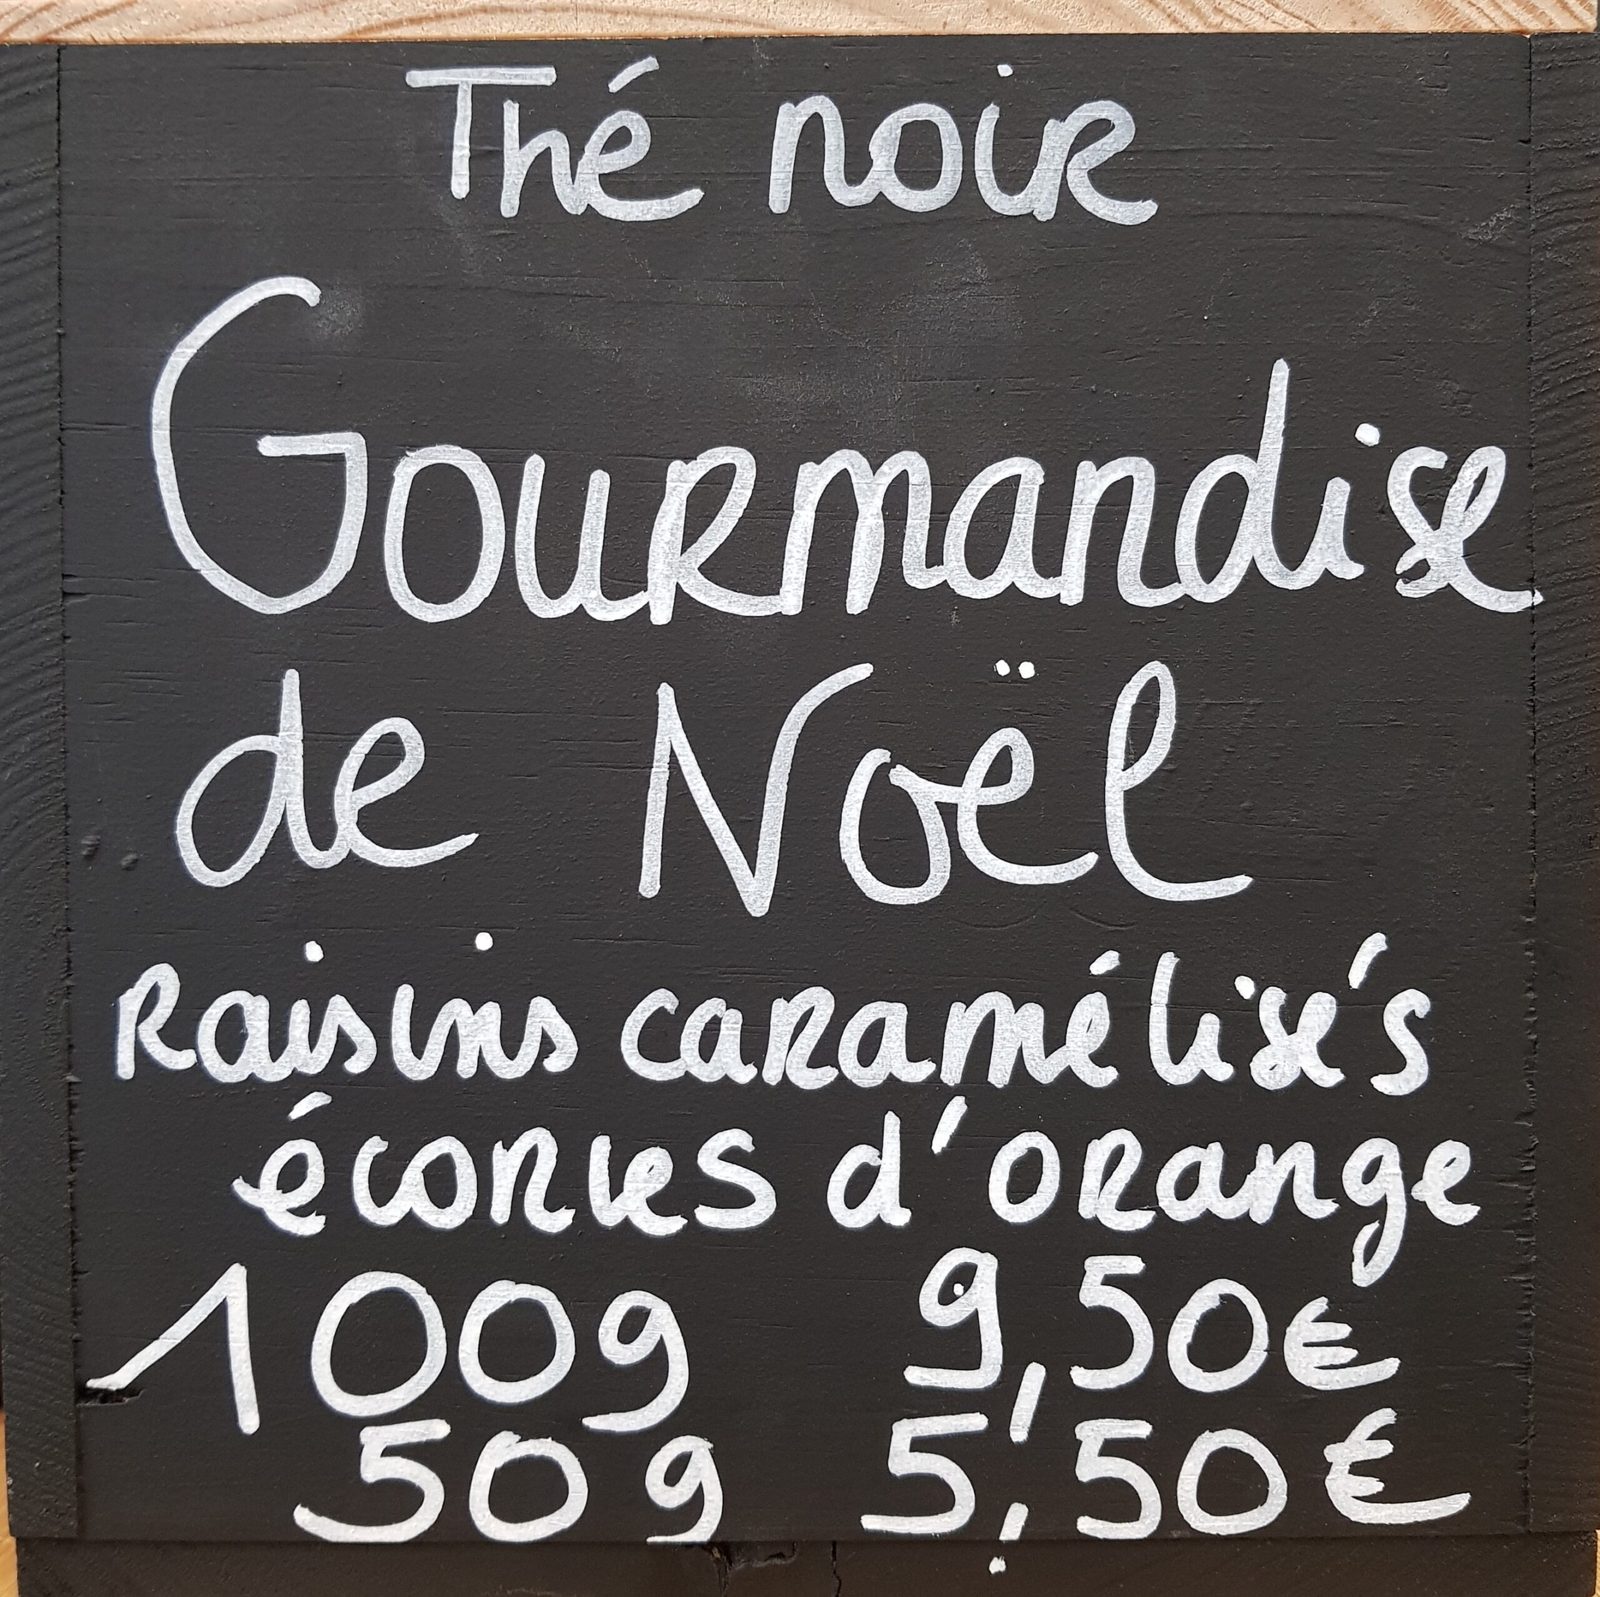 Thé noir
Gourmandise
de Noël
Raisins caramélisés
écorces d'orange
100g 9,50€
50g 5,50€